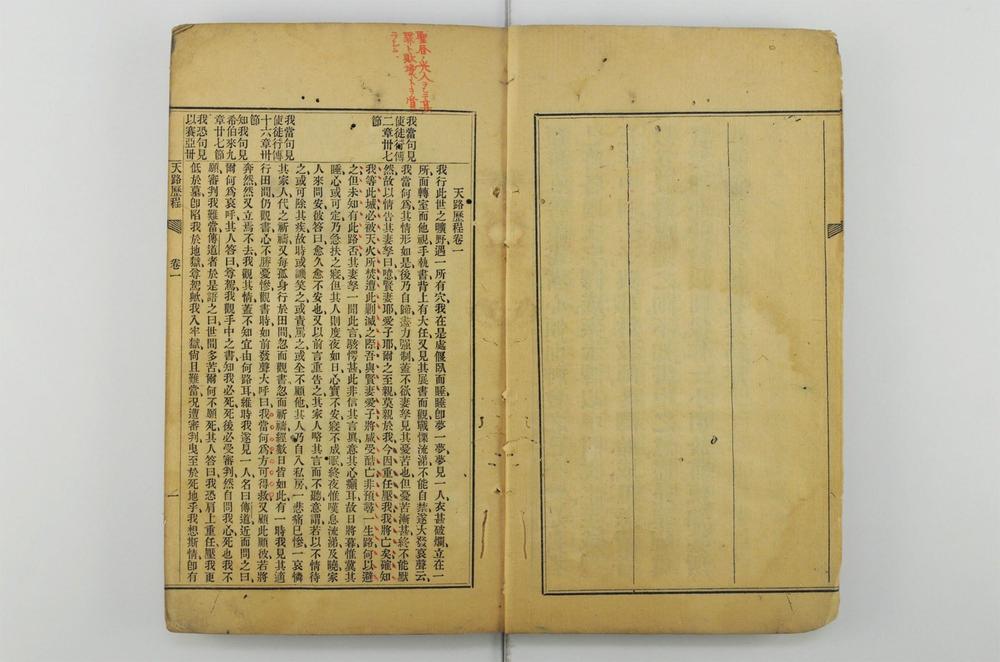 我當句見
使徒行傳
二章卅七
節
我當句見
使徒行傳
十六章卅
節
知我句見
希伯來九
章廿七節
我恐句見
以賽亞卅
天路歷程卷一
我行此世之曠野遇一所有穴我在是處偃臥而睡睡卽夢一夢夢見一人衣甚破爛立在一
所而轉室而他視手執書背上有大任又見其展書而觀戰慄流涕不能自禁遂大發哀聲云
我當何爲其情形如是後乃自歸盡力强制蓋不欲妻孥見其憂苦也但憂苦漸甚終不能默
然故以情告其妻孥曰噫賢妻耶愛子耶爾之至親莫親於我今因重任壓我我將亡矣確知
我等此城必被天火所焚遭此剿滅之際吾與賢妻愛子將咸受酷亡非預尋一生路何以避
之但未知有此路否其妻孥一聞此言駭愕甚此非信其言眞意其心癲耳故日將暮惟冀其
睡心或可定乃急扶之寢但其人則度夜如日心實不安寢不成眠終夜惟嘆息流涕及曉家
人來問安彼答曰愈久愈不安也又以前言重告之其家人略其言而不聽意謂若以不情待
之或可除其疾故時或譏笑之或責罵之或全不顧他其人乃自入私房一悲痛已慘一哀憐
其家人代之祈禱又每孤身行於田間忽而觀書忽而祈禱經數日皆如此有一時我見其適
行田間仍觀書心不勝憂慘觀書時如前發聲大呼曰我當何爲方可得救又顧此顧彼若將
奔然然又立焉不去我觀其情蓋不知宜由何路耳維時我遂見一人名曰傳道近而問之曰
爾何爲哀呼其人答曰尊駕我觀手中之書知我必死死後必受審判然自問我心死也我不
願審判我難當傳道者於是語之曰世間多苦爾何不願死其人答曰我恐肩上重任壓我更
低於墓卽陷我於地獄尊駕歟我入牢獄尙且難當况遭審判曳至於死地乎我想斯情卽有
天路歷程
卷一
一